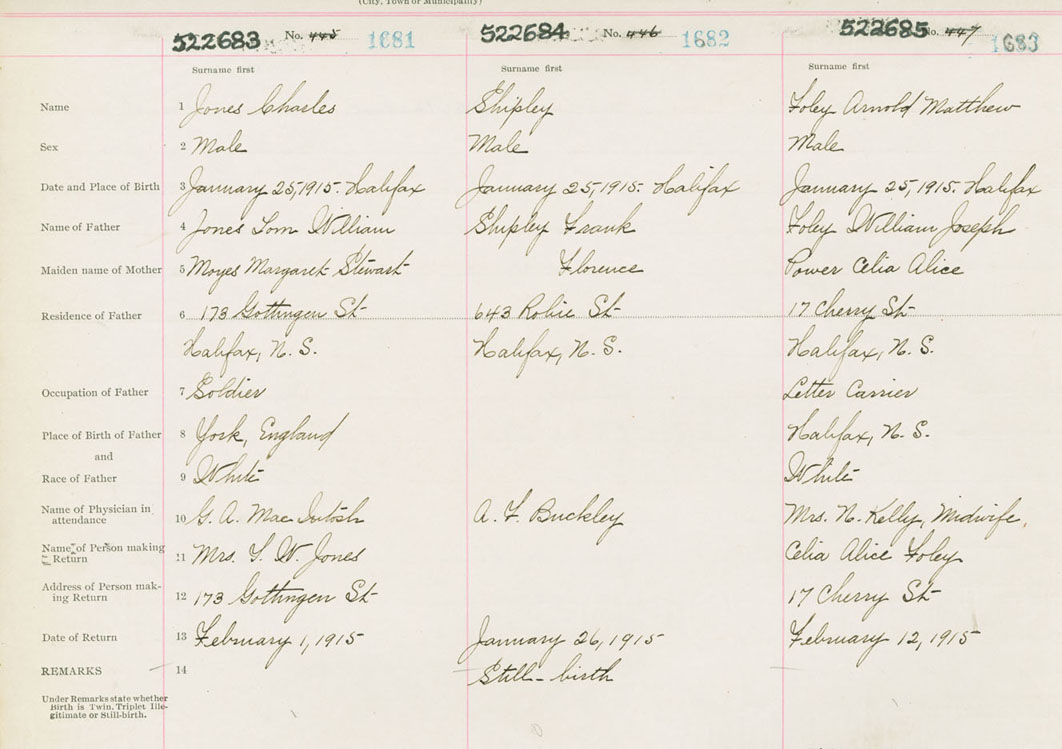 (City, Town or Municipality)
522683 No. 445 1681 522684 No. 446 1682 522685 No. 447 1683
Surname first Surname first Surname first
Name 1 Jones Charles Shipley Foley Arnold Matthew
Sex 2 Male Male Male
Date and Place of Birth 3 January 25, 1915. Halifax January 25, 1915. Halifax January 25, 1915. Halifax
Name of Father 4 Jones Tom William Shipley Frank Foley William Joseph
Maiden name of Mother 5 Moyes Margaret Stewart Florence Power Celia Alice
Residence of Father 6 173 Gottingen St 643 Robie St 17 Cherry St
Halifax, N. S. Halifax, N. S. Halifax, N. S.
Occupation of Father 7 Soldier Letter Carrier
Place of Birth of Father 8 York, England Halifax, N. S.
and
Race of Father 9 White White
Name of Physician in
attendance 10 G. A. MacIntosh A. F. Buckley Mrs. N. Kelly, Midwife,
Name of Person making
Return 11 Mrs. T. W. Jones Celia Alice Foley
Address of Person mak-
ing Return 12 173 Gottingen St 17 Cherry St
Date of Return 13 February 1, 1915 January 26, 1915 February 12, 1915
REMARKS 14 Still-birth
Under Remarks state whether
Birth is Twin. Triplet Ille-
gitimate or Still-birth.